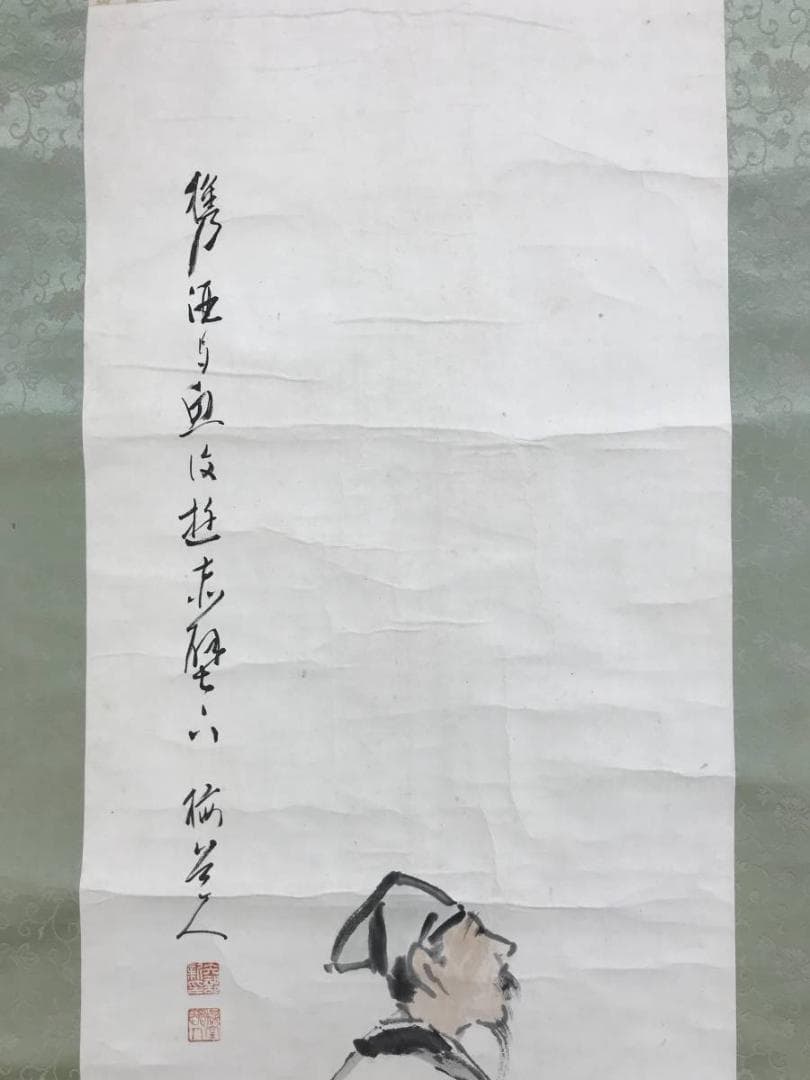 携酒与魚復遊赤壁下 梅谷人